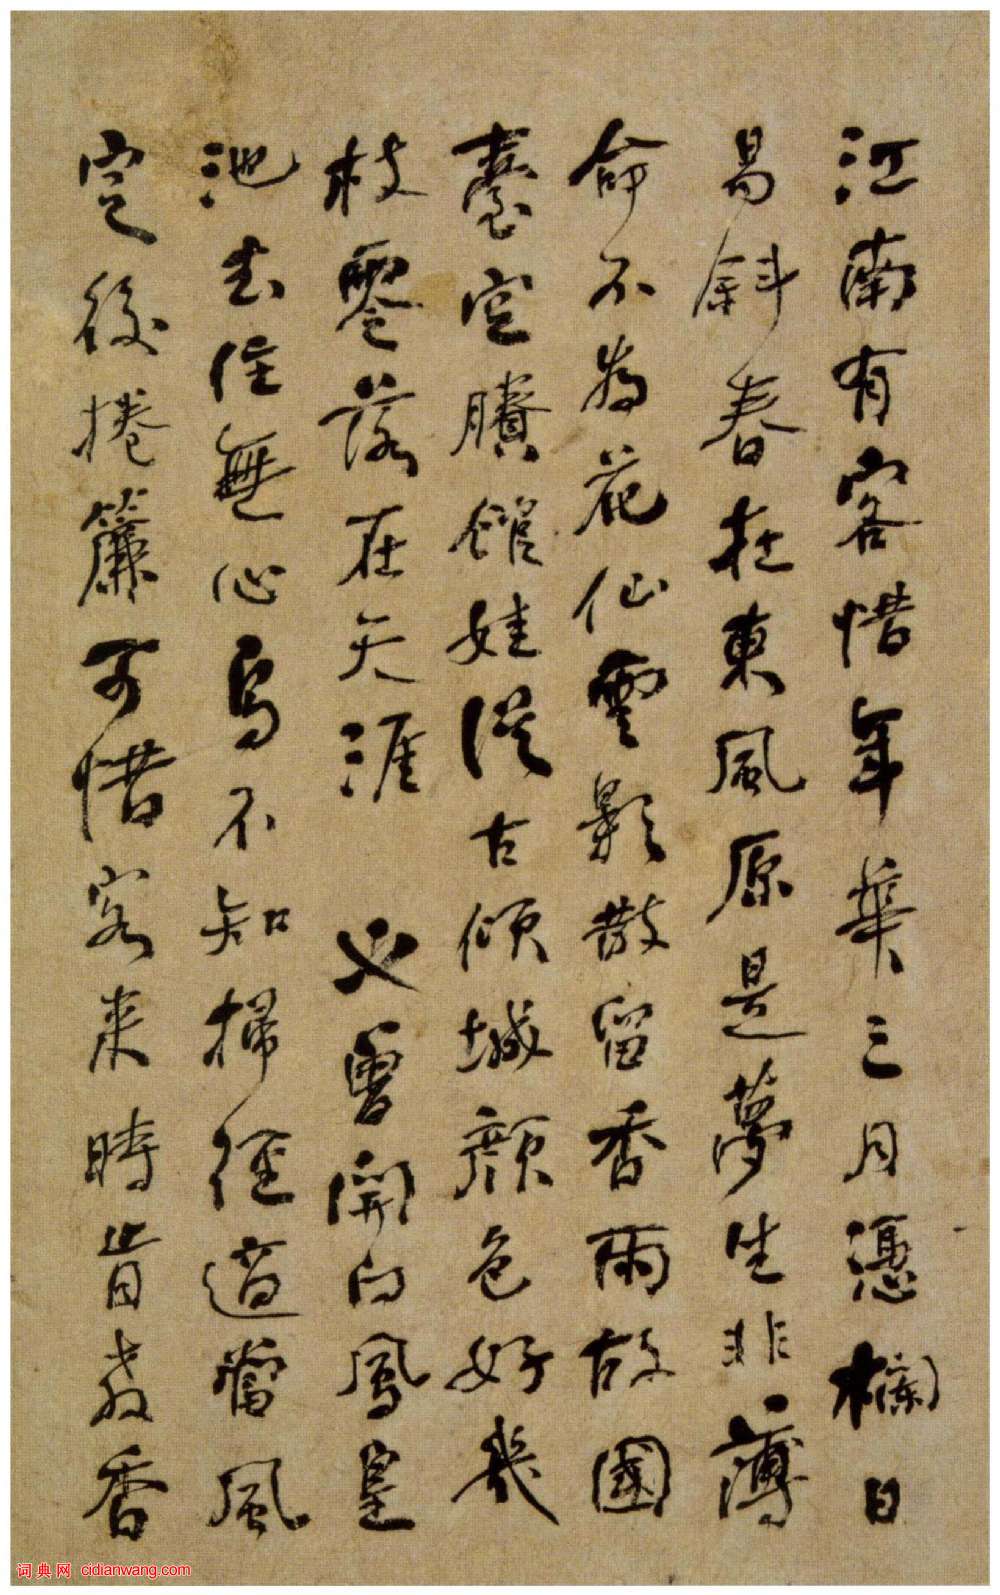 江南有客惜年華三月憑欄日
易斜春在東風原是夢生非薄
命不為花仙雲影散留香雨故國
臺空賸館娃從古傾城顏色好幾
枝零落在天涯 又曾開向鳳皇
池去住無心鳥不知掃徑適當風
定後捲簾可惜客來時肯教香
词典网 cidianwang.com